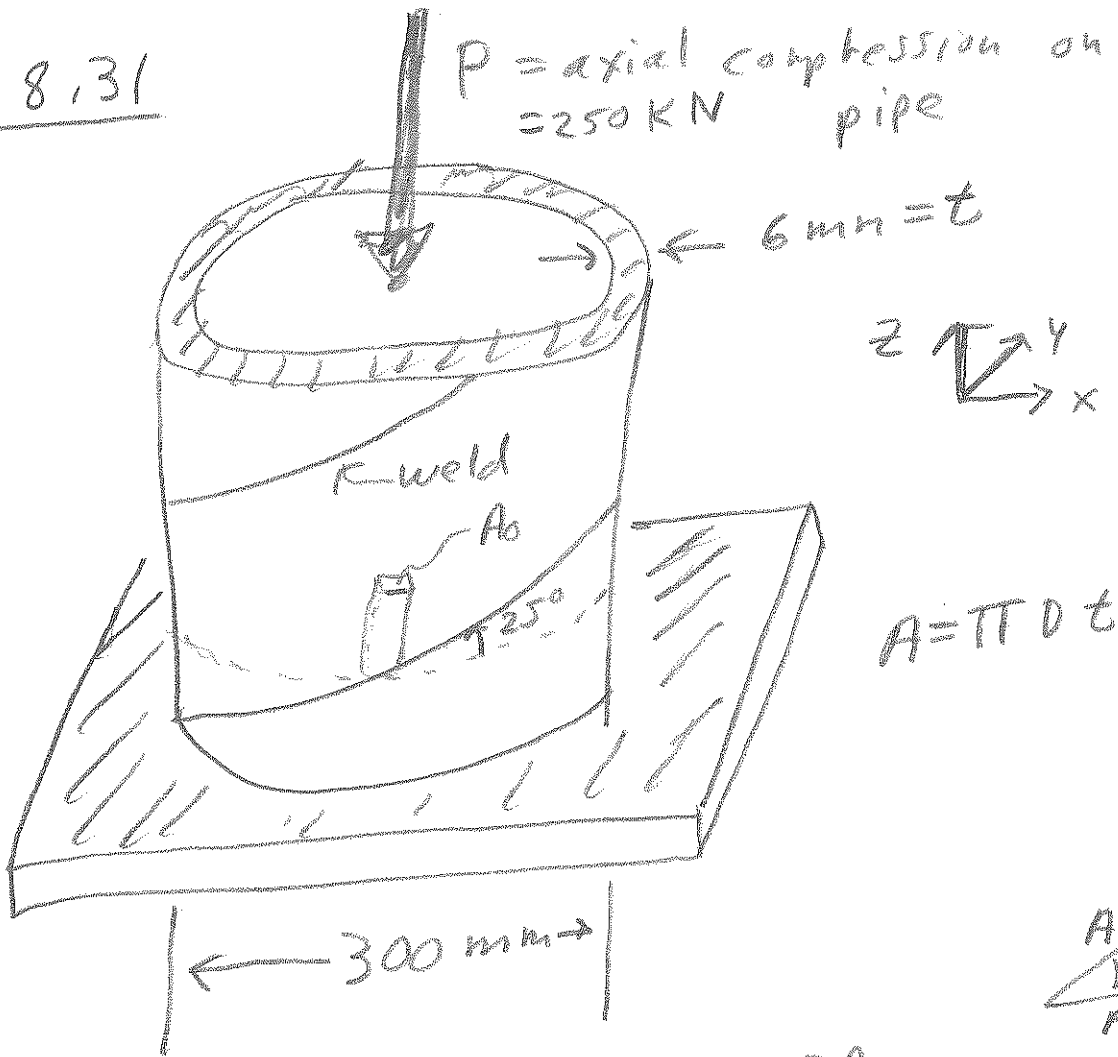 8.31
P = axial compression on
= 250 KN pipe
6 mm = t
z y
x
weld
A₀
25°
A = π D t
300 mm
A